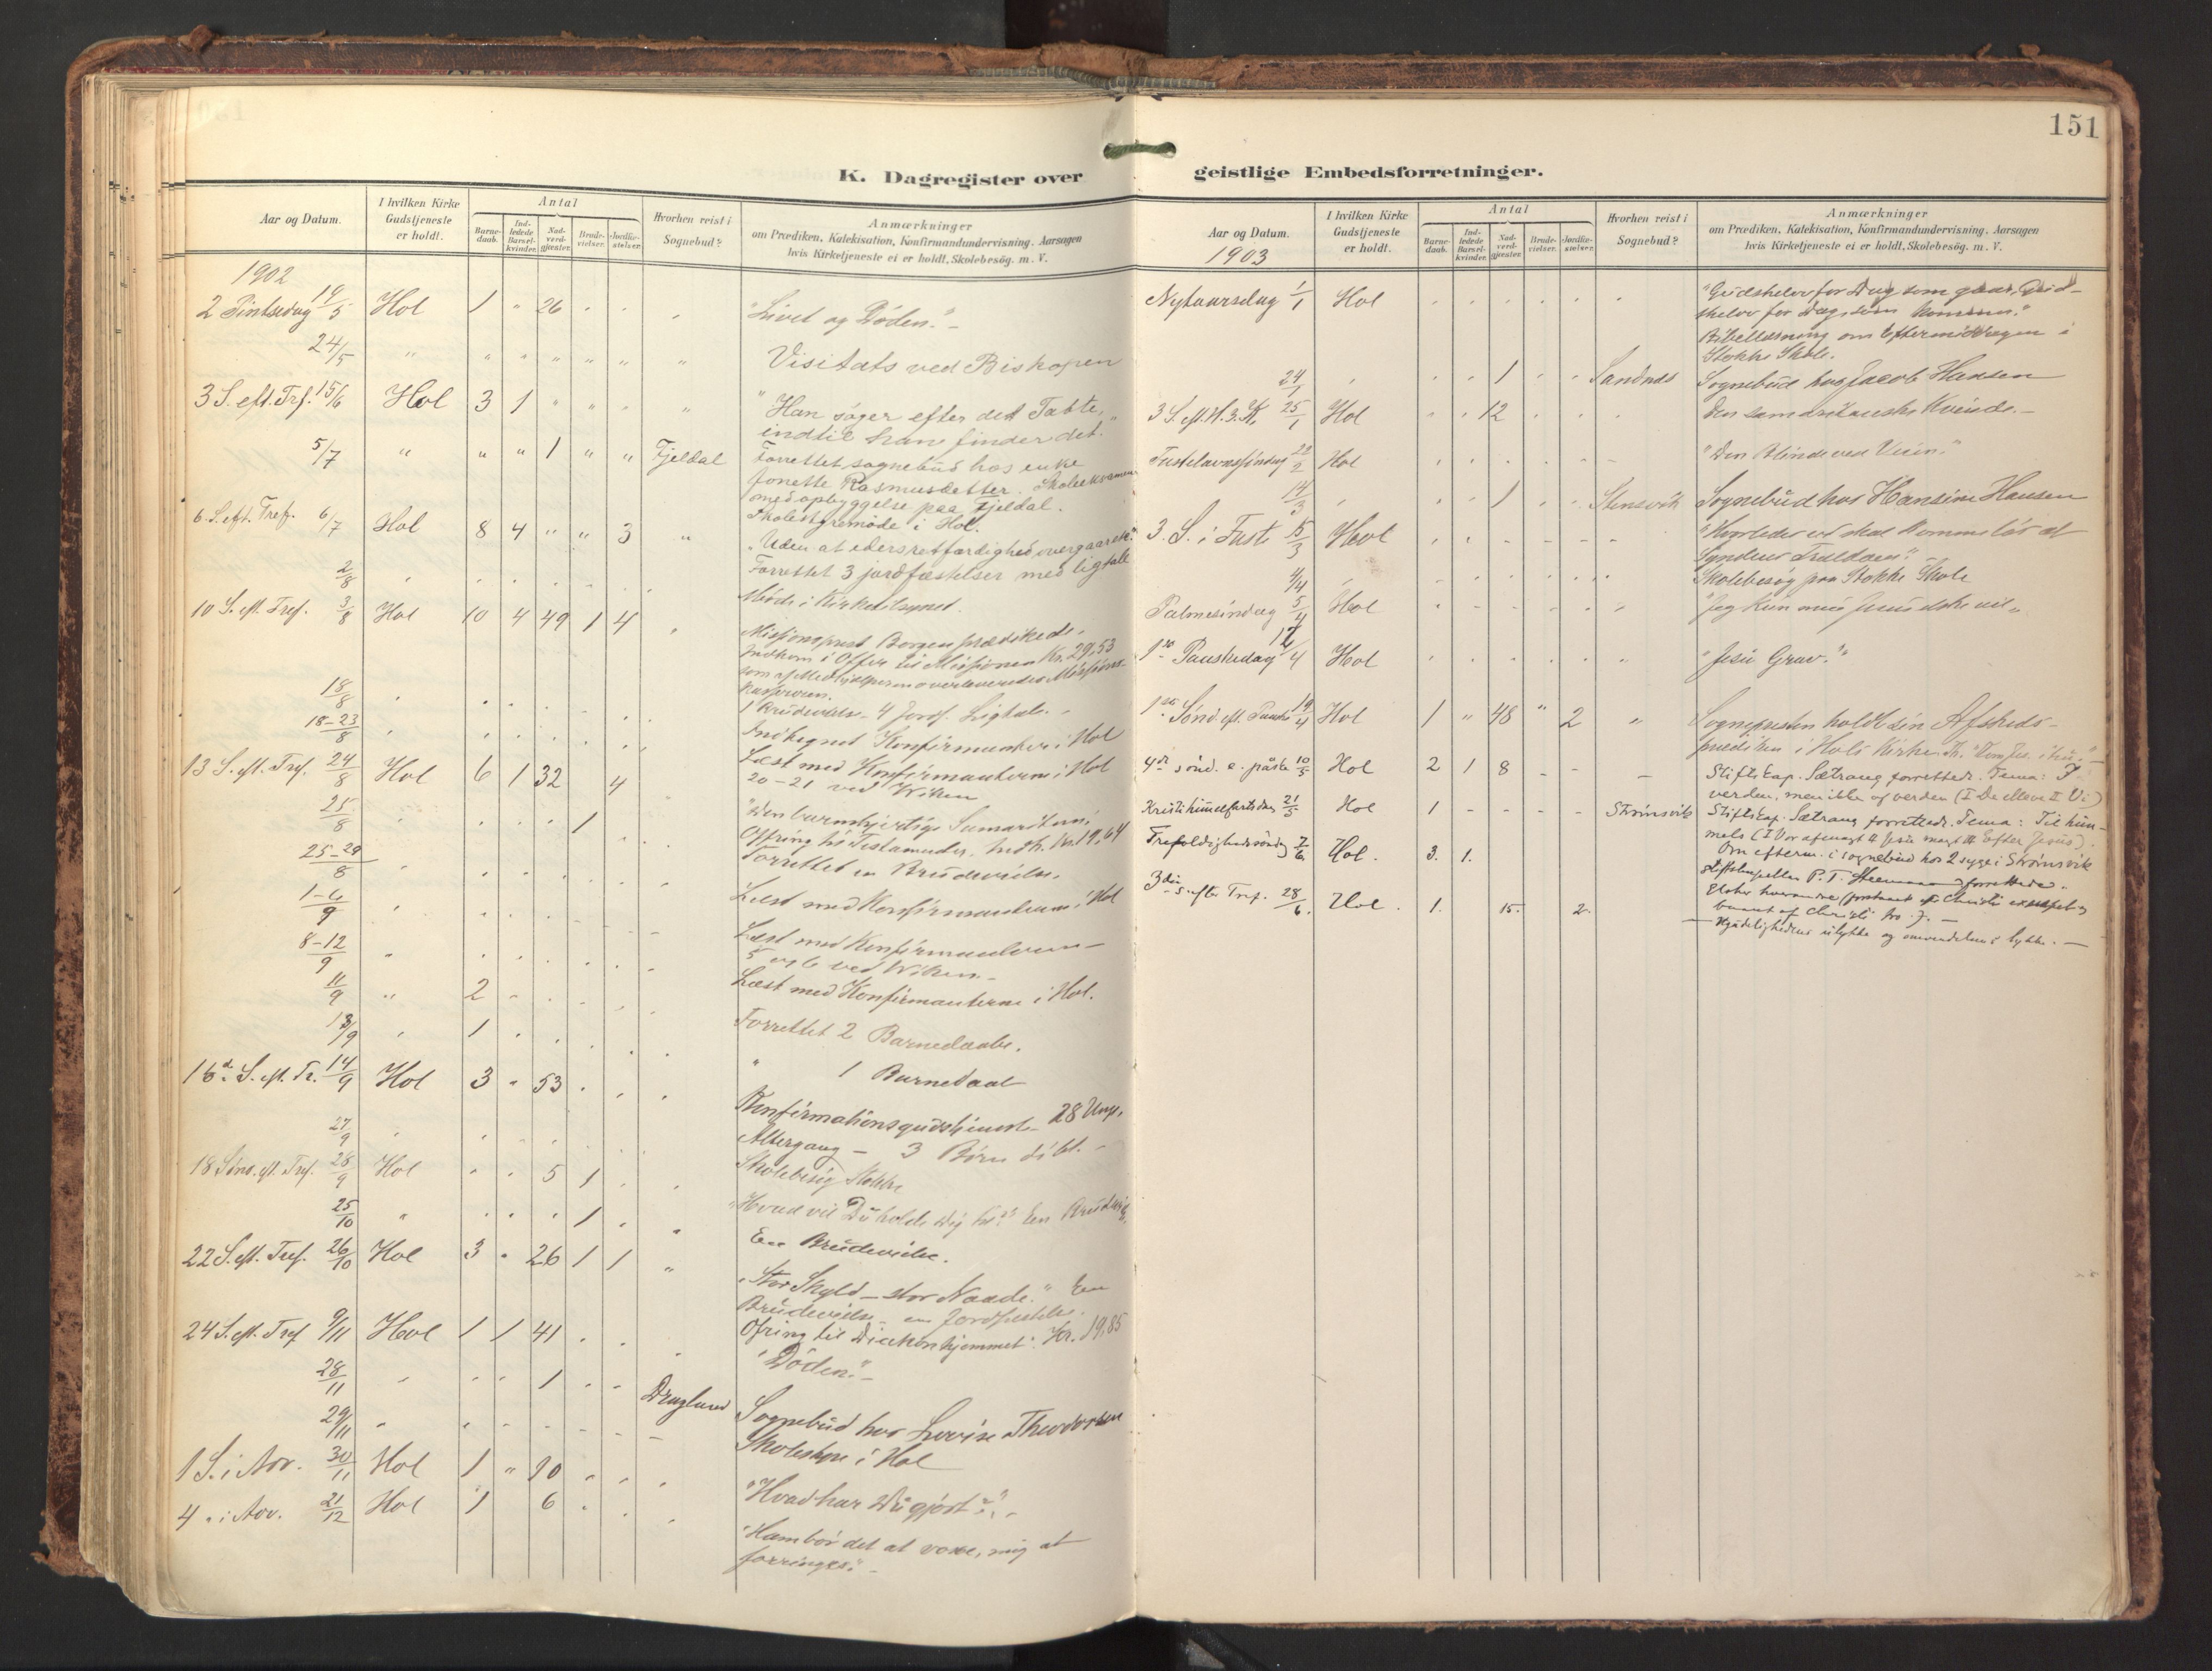 151
K. Dagregister over
Aar og Datum.
I hvilken Kirke Gudstjeneste er holdt.
Antal
Barne-daab.
Ind-ledede Barsel-kvinder.
Nad-verd-gjester.
Brude-vielser.
Jordfæ-stelser.
Hvorhen reist i Sognebud?
Anmærkninger
om Prædiken, Katekisation, Konfirmandundervisning. Aarsagen
hvis Kirketjeneste ei er holdt, Skolebesøg. m. V.
1902
2 Pintsedag 19/5 Hol 1 " 26 " " " "Livet og Døden." -
24/5 " " " " " " " Visitats ved Biskopen
3 S. eft. Trf. 15/6 Hol 3 1 " " " " "Han søger efter det Tabte,
indtil han finder det."
5/7 " " " 1 " " Fjeldal Forrettet sognebud hos enke
Jonette Rasmusdetter. Skoleexamen
med opbyggelse paa Fjeldal.
Skolestyremøde i Hol.
6 S. eft. Tref. 6/7 Hol 8 4 " " 3 " "Uden at eders retfærdighed overgaar etc."
Forrettet 3 jordfæstelser med ligtale
2/8 " Møde i Kirketilsynet.
10 S. eft. Tref. 3/8 Hol 10 4 49 1 4 " Missionsprest Borgen prædikede.
Indkom i Offer til Missionen Kr. 29,53
som af Medhjælperen overleveredes Missions-
kassereren.
1 Brudevielse - 4 Jordf. Ligtale. -
18/8 " Indtegnet Konfirmanter i Hol
18-23/8 " Læst med Konfirmanterne i Hol
20-21 ved Wiken
13 S. eft. Tref. 24/8 Hol 6 1 32 " 4 " "Den barmhjertige Samaritan."
Ofring til Testamenter. Indk. Kr. 19,64
25/8 " " " " 1 " " Forrettet en Brudevielse.
25-29/8 " Læst med Konfirmanterne i Hol
1-6/9 " Læst med Konfirmanterne -
5 og 6 ved Wiken -
8-12/9 " Læst med Konfirmanterne i Hol.
11/9 " 2 " " " " " Forrettet 2 Barnedaabe.
13/9 " 1 " " " " " " 1 Barnedaab
16de S. eft. Tr. 14/9 Hol 3 " 53 " " " Konfirmationsgudstjeneste - 28 Unge.
Altergang - 3 Børn døbt. -
27/9 " Skolebesøg Stokke
18 Sønd. eft. Tref. 28/9 Hol " " 5 1 " " "Hvad vil Du holde dig til?" En Brudevielse.
25/10 " " " " 1 " " En Brudevielse.
22 S. eft. Tref. 26/10 Hol 3 " 26 1 1 " "Stor Skyld - stor Naade." En
Brudevielse - en Jordfæstelse.
Ofring til Diakonhjemmet: Kr. 19,85
24 S. eft. Tref 9/11 Hol 1 1 41 " " " "Døden." -
28/11 " " " 1 " " Draglund Sognebud hos Lovise Theodorsen
29/11 " Skolestyre i Hol
1 S. i Adv. 30/11 Hol 1 " 10 " " " "Hvad har Du gjort?" -
4 " i Adv. 21/12 Hol 1 6 " " " "Ham bør det at voxe, mig at
forringes." -
geistlige Embedsforretninger.
Aar og Datum.
I hvilken Kirke Gudstjeneste er holdt.
Antal
Barne-daab.
Ind-ledede Barsel-kvinder.
Nad-verd-gjester.
Brude-vielser.
Jordfæ-stelser.
Hvorhen reist i Sognebud?
Anmærkninger
om Prædiken, Katekisation, Konfirmandundervisning. Aarsagen
hvis Kirketjeneste ei er holdt, Skolebesøg. m. V.
1903
Nytaarsdag 1/1 Hol " " " " " " "Gudskelov for Dag som gaar, Gud-
skelov for Dag, som kommer."
Bibellæsning om Eftermiddagen i
Stokke Skole.
24/1 " " " 1 " " Sandnes Sognebud hos Jacob Hansen
3 S. eft. H. 3. K. 25/1 Hol " " 12 " " " Den samaritanske Kvinde. -
Fastelavnssøndag 22/2 Hol " " " " " " "Den Blinde ved Veien."
14/3 " " " 1 " " Stensvik Sognebud hos Hansine Hansen
3. S. i Faste 15/3 Hol " " - - - - "Hvorledes vi skal komme løs af
Syndens Trældom."
4/4 " Skolebesøg paa Stokke Skole
Palmesøndag 5/4 Hol "Jeg kun min Jesu elske vil"
1ste Paaskedag 12/4 Hol " " " " " " "Jesu Grav."
1ste Sønd. eft. Paaske 19/4 Hol 1 " 48 " 2 " Sognepresten holdt sin Afskeds-
prædiken i Hols Kirke.
4de sønd. e. påske 10/5 Hol 2 1 8 - - - Stiftskap. Sætrang forrettede. Tema: I
verden, men ikke af verden (I De elleve II Vi)
Kristi himmelfartsdag 21/5 Hol 1 - - - - Strømsvik Stiftskap. Sætrang forrettede. Tema: Til him-
mels (I Vor afmagt II Jesu magt III Efter Jesus).
Om efterm. i sognebud hos 2 syge i Strømsvik
Trefoldighedssøndag 7/6 Hol. 3. 1. Stiftskapellan P. T. forrettede.
Elsker hverandre
3die s. efter Tref. 28/6. Hol. 1. 15. 2. - Ugudelighedens ulykke og omvendelsens lykke. -